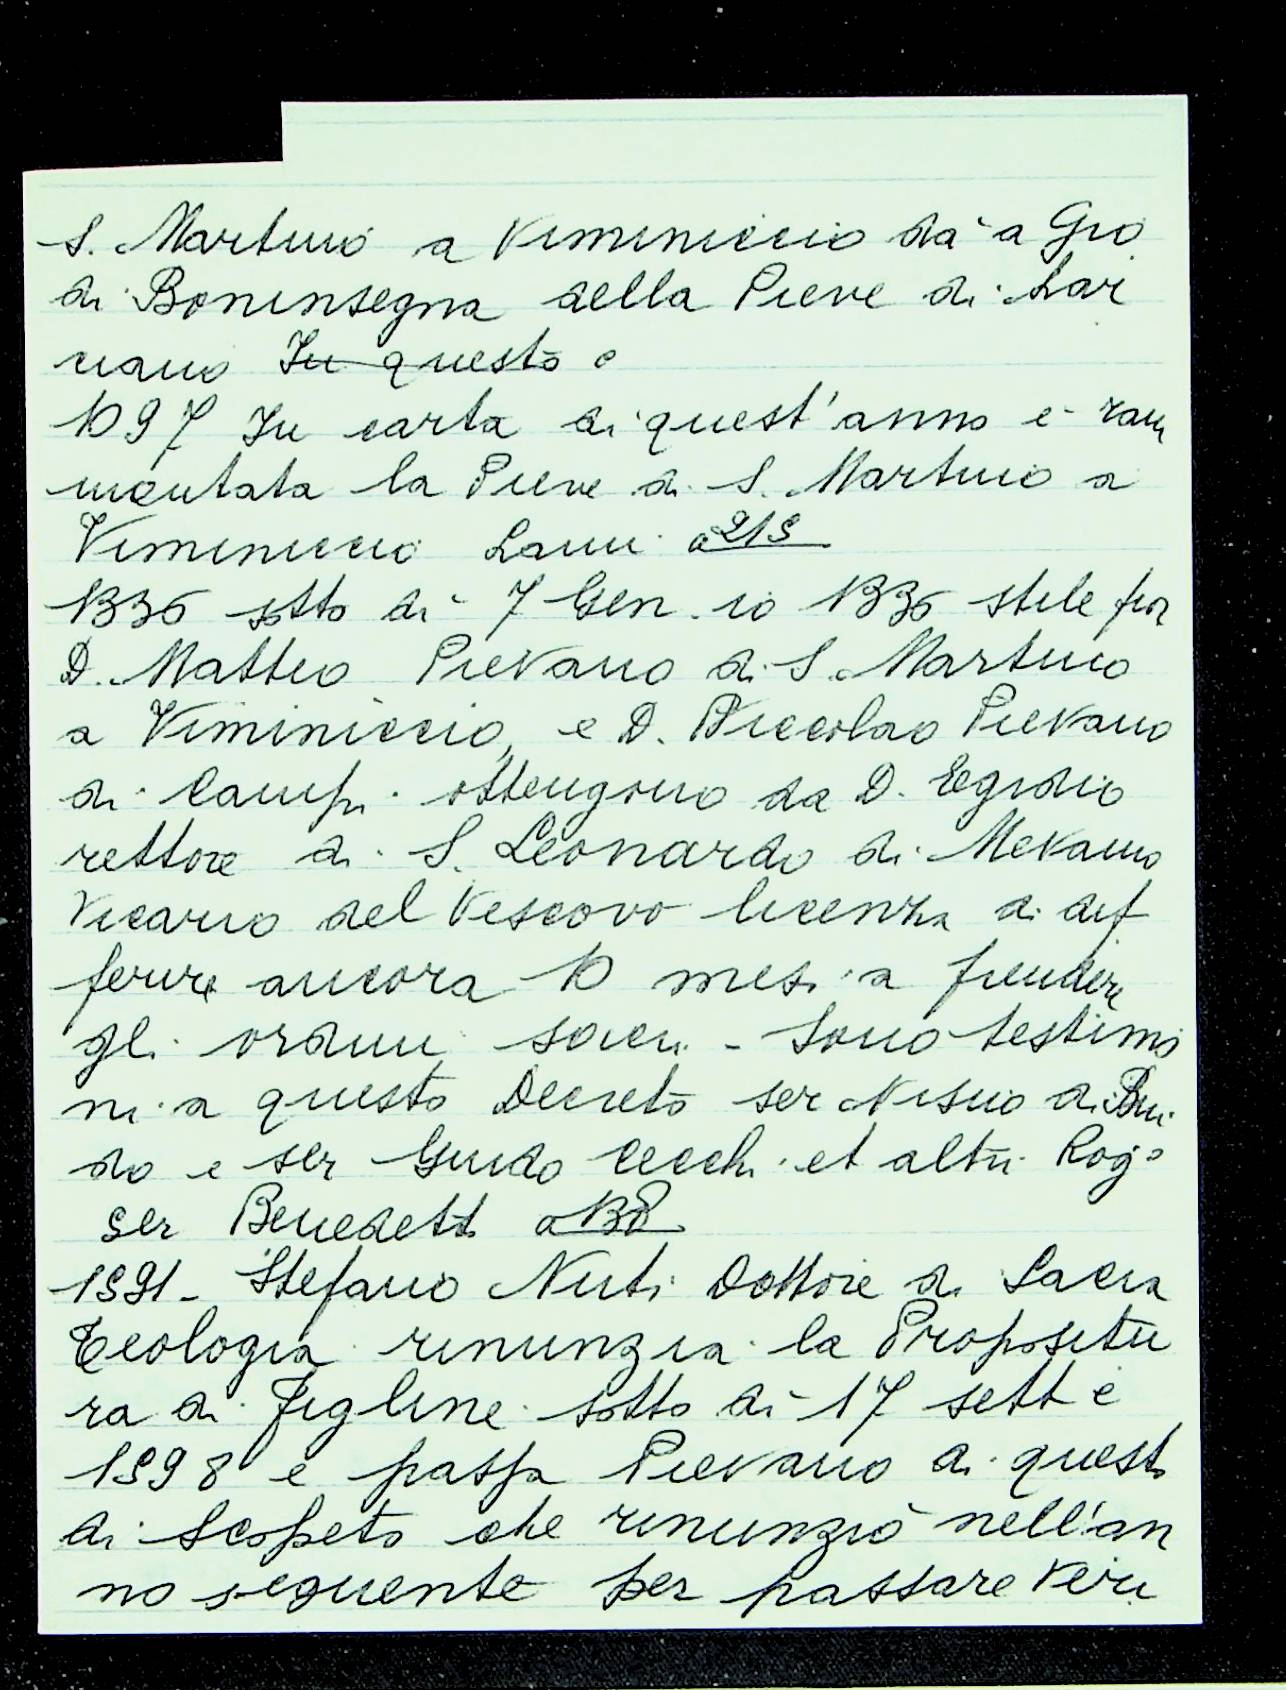 S. Martino a Viminiccio dà a Gio
di Boninsegna della Pieve di Lar
ciano In questo e
1097 In carta di quest'anno è ram
mentata la Pieve di S. Martino a
Viminiccio Lami a 215
1336 sotto dì 7 Gen.io 1336 stile fior
D. Matteo Pievano di S. Martino
a Viminiccio, e D. Niccolao Pievano
di Campi ottengono da D. Egidio
rettore di S. Leonardo di
Vicario del Vescovo licenza di dif
ferire ancora 10 mesi a prendere
gli ordini sacri - Sono testimo
ni a questo Decreto ser di
do e ser Guido Cecchi et altri Rog°
ser Benedetto a 138
1591 - Stefano Nuti Dottore di Sacra
Teologia rinunzia la Propositu
ra di Figline sotto dì 17 sett e
1598 e passa Pievano di questo
di Scopeto che rinunziò nell'an
no seguente per passare